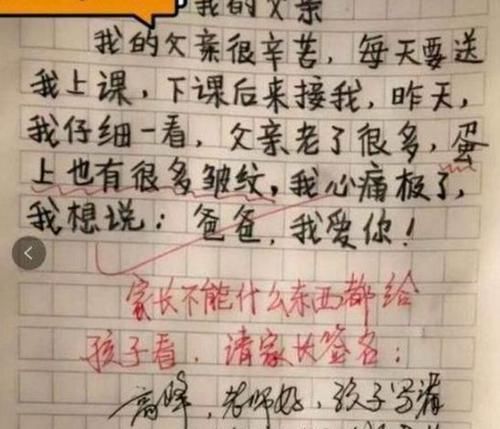 我的父亲
我的父亲很辛苦，每天要送
我上课，下课后来接我，昨天，
我仔细一看，父亲老了很多，蛋
上也有很多皱纹，我心痛极了，
我想说：爸爸，我爱你！
家长不能什么东西都给
孩子看，请家长签名：
高峰，老师好，孩子写清